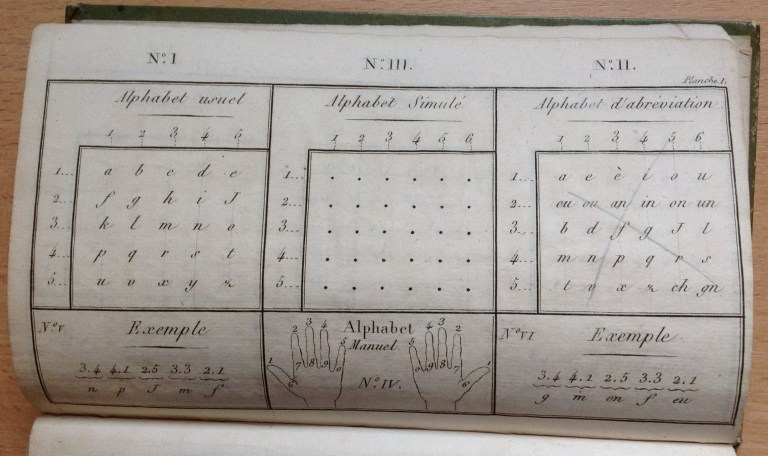 N.º I
N.º III.
N.º II.
Planche 1.
Alphabet usuel
1 2 3 4 5
1... a b c d e
2... f g h i J
3... k l m n o
4... p q r s t
5... u v x y z
Alphabet Simulé
1 2 3 4 5 6
1... . . . . . .
2... . . . . . .
3... . . . . . .
4... . . . . . .
5... . . . . . .
Alphabet d'abréviation
1 2 3 4 5 6
1... a e è i o u
2... eu ou an in on un
3... b d f g J l
4... m n p q r s
5... t v x z ch gn
N.º V
Exemple
3.4 4.1 2.5 3.3 2.1
n p J m f
Alphabet
Manuel
N.º IV.
1 2 3 4 5
6 7 8 9 0
5 4 3 2 1
0 9 8 7 6
N.º VI
Exemple
3.4 4.1 2.5 3.3 2.1
g m on f eu